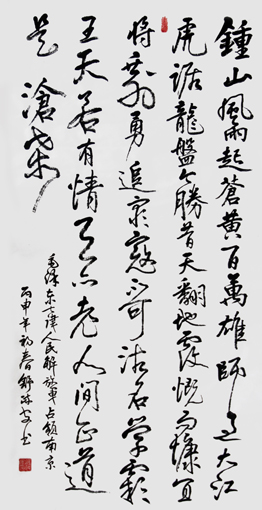 鍾山風雨起蒼黃百萬雄師過大江
虎踞龍盤今勝昔天翻地覆慨而慷宜
將剩勇追窮寇不可沽名學霸
王天若有情天亦老人間正道
是滄桑
毛泽东七律人民解放军占领南京
丙申年初春書